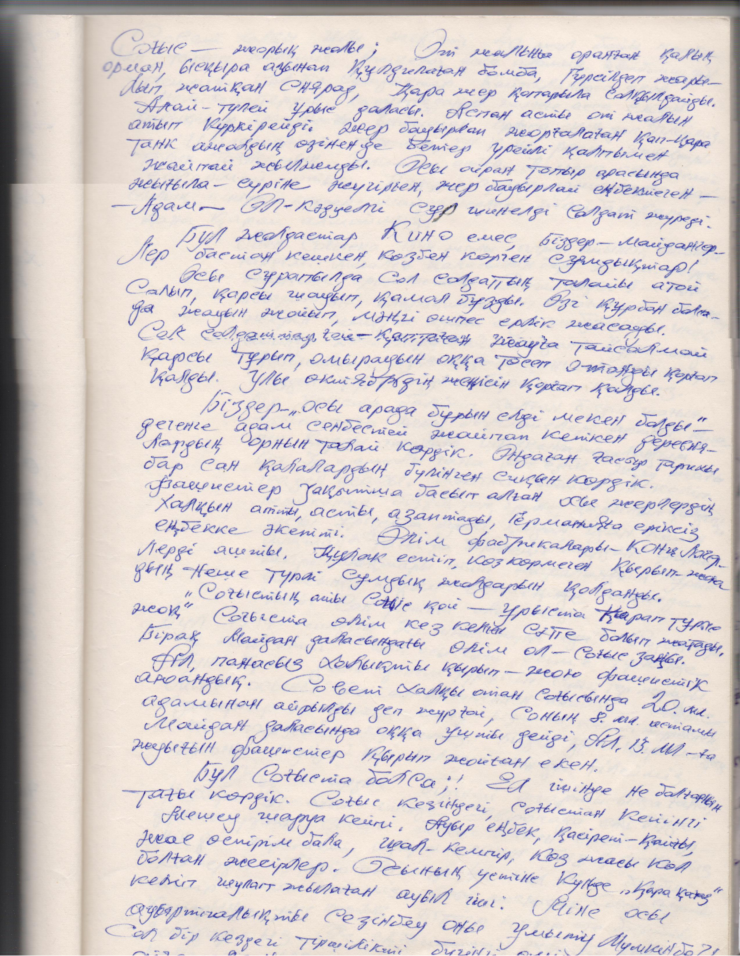 Соғыс — жорық жолы; От жалынға оранған қалың
орман, ысқыра азынап құлдилаған бомба, Гүрсілдеп жары-
лып жатқан снаряд, Қара жер қапарыла солқылдайды.
Алай-түлей ұрыс даласы. Аспан асты от жалын
атып күркірейді. Жер бауырлап жорғалаған қап-қара
танк ажалдың өзінен де бетер үрейлі қалпымен
жайпай жылжиды. Осы ойран топыр арасында
жығыла-сүріне жүгірген, жер бауырлай еңбектеген —
— Адам — Әл-Кәдуелгі сұр шинелді солдат жүреді.
Бұл жолдастар Кино емес, Біздер — майдангер-
лер бастан кешкен, көзбен көрген сұмдықтар!
Осы сұрапылда сол солдаттың талайы атой
салып, қарсы шауып, қамал бұзды. Өзі құрбан болса-
да жауын жайып, мәңгі өшпес ерлік жасады.
Сол солдаттар, қаптаған жауға тайсалмай
қарсы тұрып, омырауын оққа төсеп Отанды қорғап
қалды. Ұлы октябрьдің жеңісін қорғап қалды.
Біздер — „осы арада бұрын елді мекен болды" —
дегенге адам сенбестей жайпап кеткен деревня-
лардың орнын талай көрдік. Әлдаған ғасыр тарихы
бар сан қалалардың бүлінген сиқын көрдік.
Фашистер уақытша басып алған осы жерлердің
халқын атты, асты, азаптады, Германияға еріксіз
еңбекке әкетті. Өлім фабрикалары — Концлагер-
лерді ашты. Құлақ естіп, көз көрмеген қырып-жою
дың неше түрлі сұмдық жолдарын қолданды.
„Соғыстың аты соғыс қой — ұрыста қарап тұру
жоқ" Соғыста өлім кез келген сәтте болып жатады.
Бірақ майдан даласындағы өлім ол — соғыс заңы.
Ал, панасыз халықты қырып — жою фашистік
айуандық. Совет халқы отан соғысында 20 мл.
адамынан айрылды деп жүрғой, Соның 8 мл. шамасы
Майдан даласында оққа ұшты дейді, Ал, 13. мл-ға
жуығын фашистер қырып жойған екен.
Бұл Соғыста болса;! Ел ішінде не болғанын
тағы көрдік. Соғыс кезіндегі, соғыстан кейінгі
мешеу шаруа кейпі. Ауыр еңбек, қасірет-қайғы,
жас өспірім бала, шал-кемпір, Көз жасы көл
болған жесірлер. Осының үстіне күнде „Қара қағаз"
келіп шулап жылаған ауыл іші. Міне осы
ауыртпалықты сезінбеу оны ұмыту Мүмкін ба?!
Сол бір кездегі тіршілікті бүгінгі